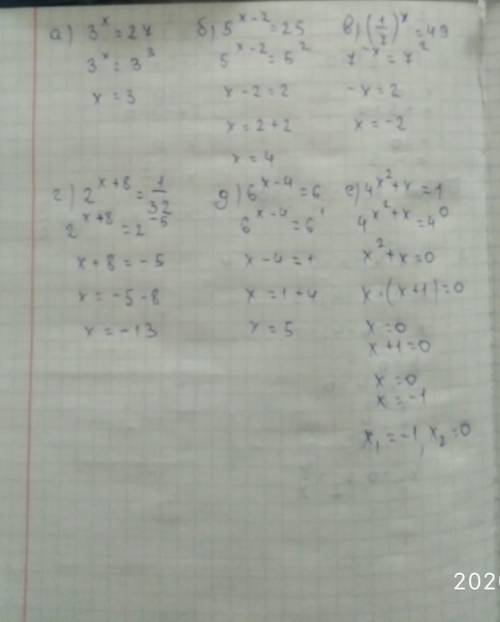 а) 3^x = 27
3^x = 3^3
x = 3
б) 5^{x-2} = 25
5^{x-2} = 5^2
x - 2 = 2
x = 2 + 2
x = 4
в) (1/7)^x = 49
7^{-x} = 7^2
-x = 2
x = -2
г) 2^{x+8} = 1/32
2^{x+8} = 2^{-5}
x + 8 = -5
x = -5 - 8
x = -13
д) 6^{x-4} = 6
6^{x-4} = 6^1
x - 4 = 1
x = 1 + 4
x = 5
е) 4^{x^2+x} = 1
4^{x^2+x} = 4^0
x^2 + x = 0
x · (x + 1) = 0
x = 0
x + 1 = 0
x = 0
x = -1
x_1 = -1, x_2 = 0